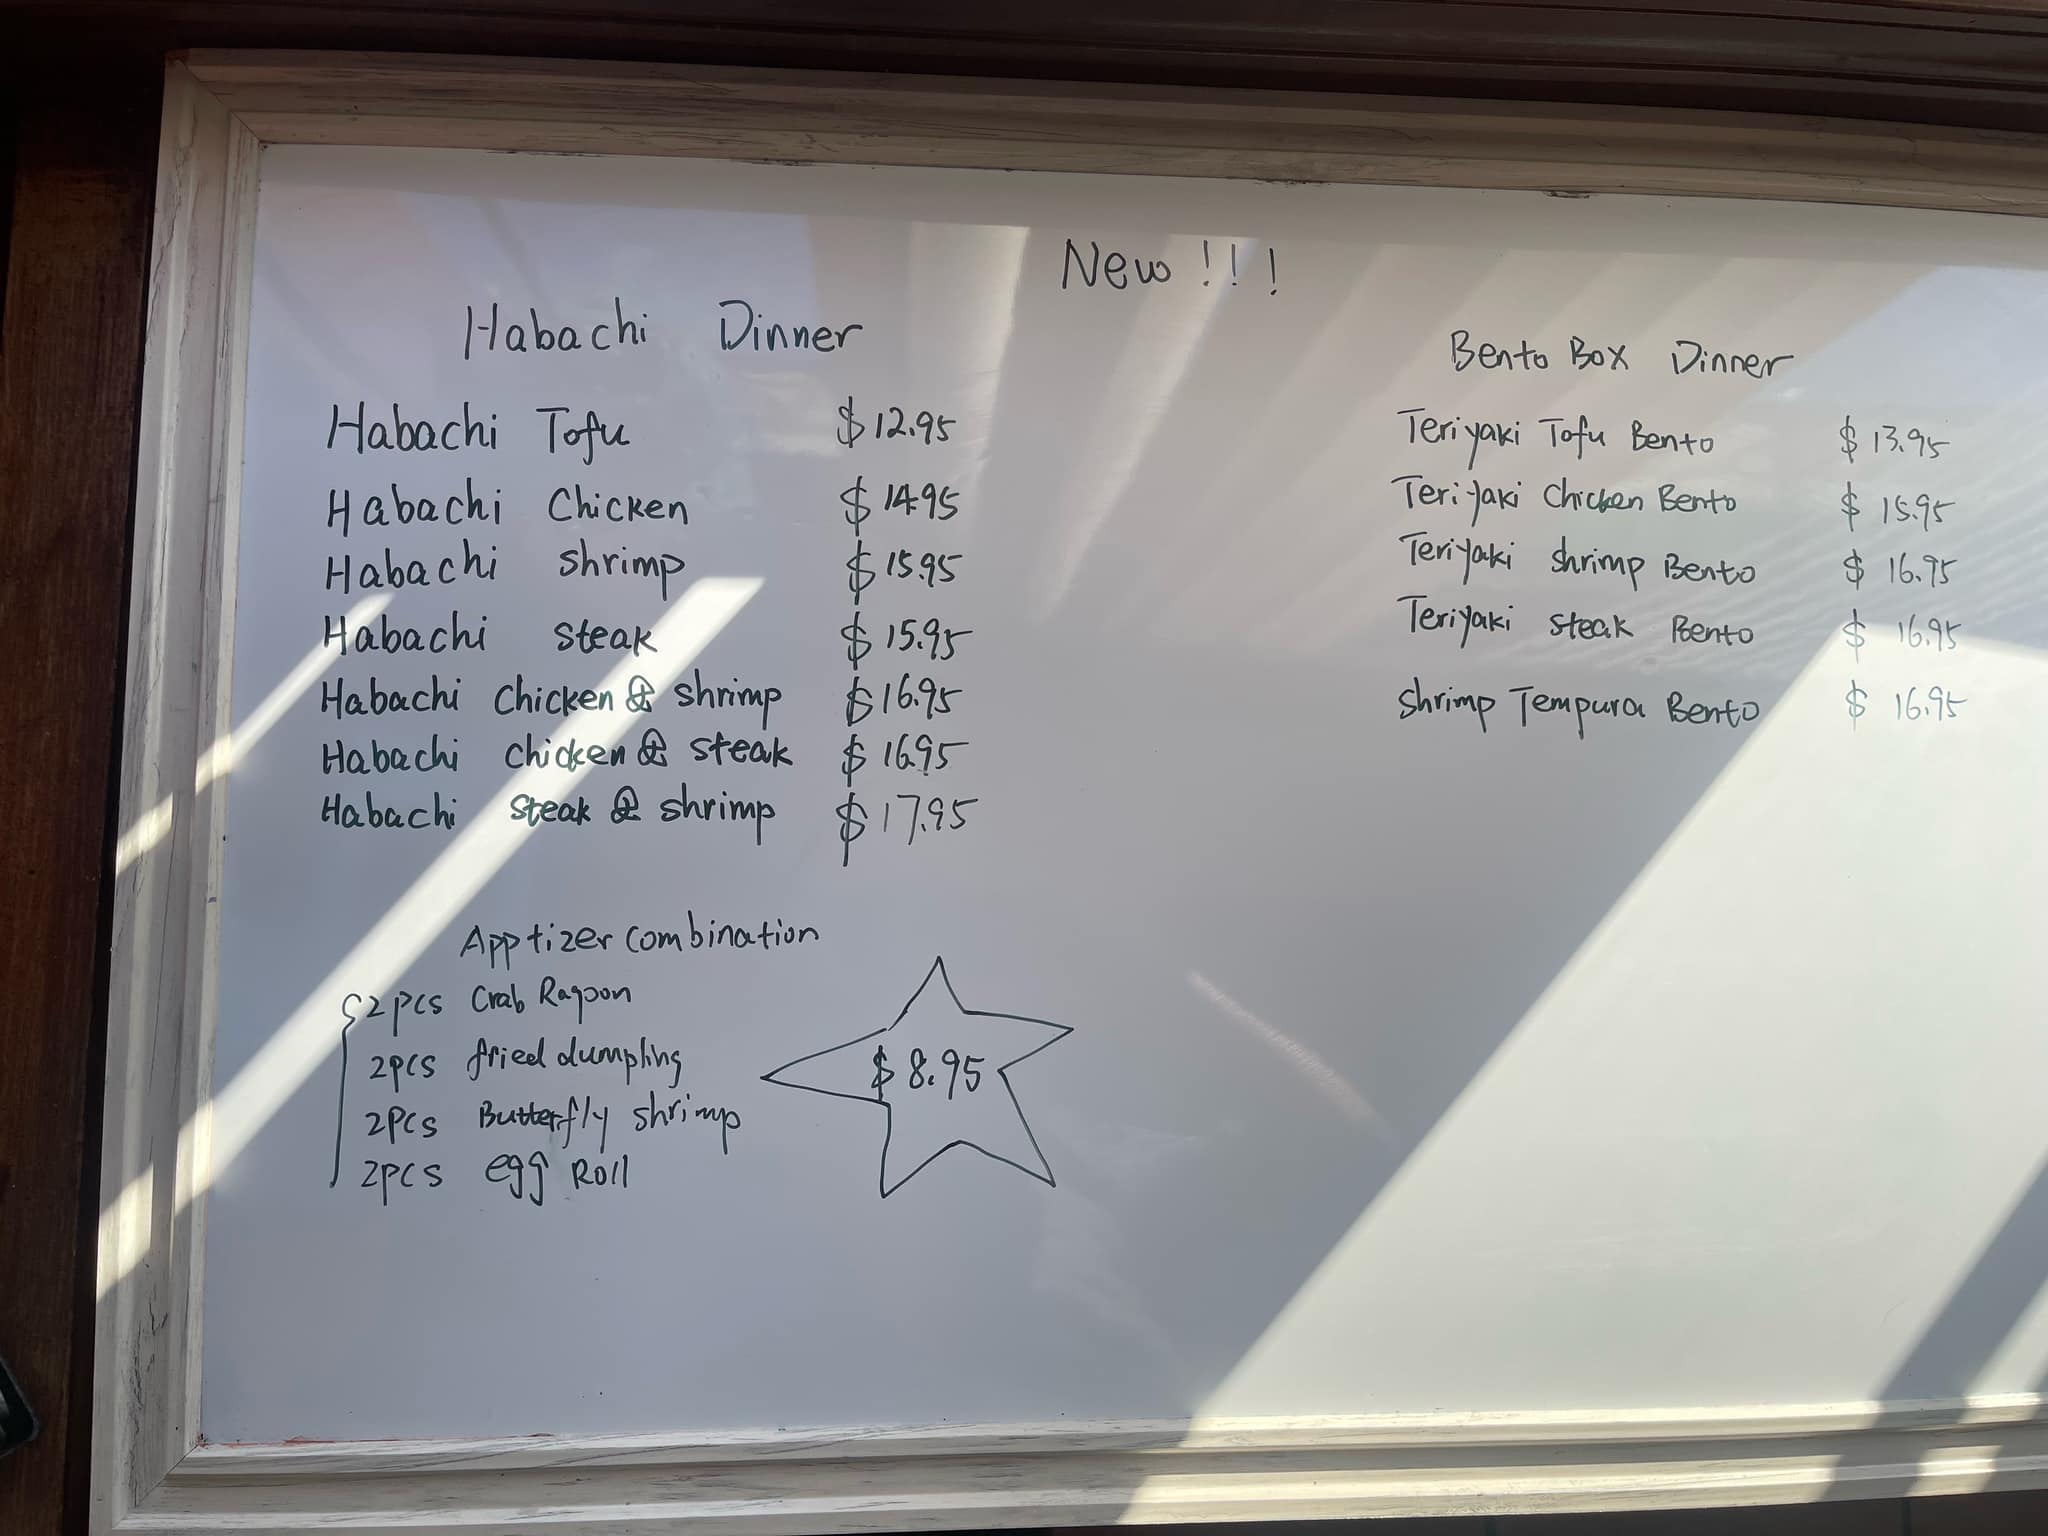 New!!!
Habachi Dinner
Habachi Tofu $12.95
Habachi Chicken $14.95
Habachi shrimp $15.95
Habachi steak $15.95
Habachi Chicken & shrimp $16.95
Habachi chicken & steak $16.95
Habachi steak & shrimp $17.95
Bento Box Dinner
Teriyaki Tofu Bento $13.95
Teriyaki Chicken Bento $15.95
Teriyaki shrimp Bento $16.95
Teriyaki steak Bento $16.95
Shrimp Tempura Bento $16.95
Apptizer combination
2pcs Crab Ragoon
2pcs fried dumpling
2pcs Butterfly shrimp
2pcs egg Roll
$8.95